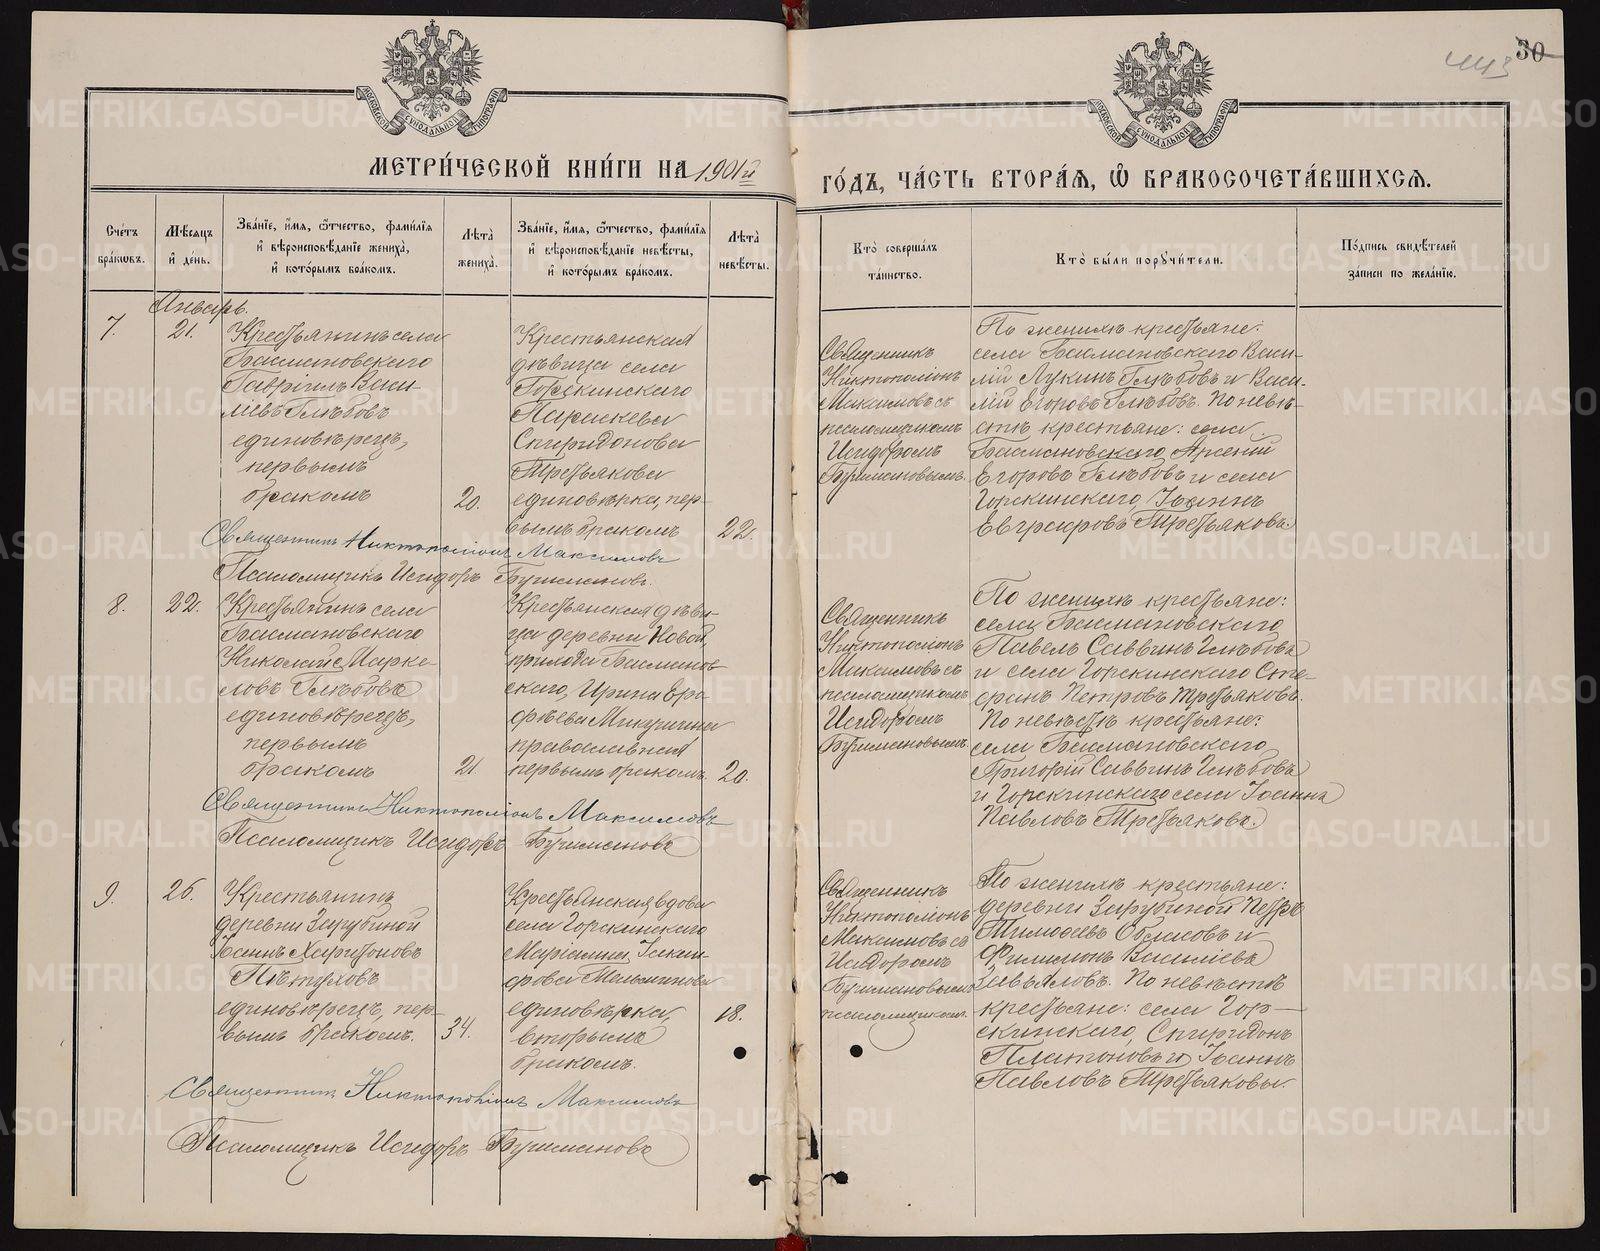 30
МЕТРИ́ЧЕСКОЙ КНИ́ГИ НА 1901й
ГО́ДЪ, ЧА́СТЬ ВТОРА́Я, Ѽ БРАКОСОЧЕТА́ВШИХСЯ.
Сче́тъ бра́ковъ.
Мѣ́сяцъ и҆ де́нь.
Зва́нїе, и҆́мя, ѻ҆́тчество, фами́лїя
и҆ вѣроисповѣ́данїе жениха̀,
и҆ кото́рымъ бра́комъ.
Лѣ́та̀ жениха̀.
Зва́нїе, и҆́мя, ѻ҆́тчество, фами́лїя
и҆ вѣроисповѣ́данїе невѣ́сты,
и҆ кото́рымъ бра́комъ.
Лѣ́та̀ невѣ́сты.
Кто̀ соверша́лъ
та́инство.
Кто̀ бы́ли порꙋчи́тели.
По́дпись свидѣ́телей
за́писи по жела́нїю.
Январь.
7.
21.
Крестьянинъ села
Басмановскаго
Гавріилъ Васи-
льевъ Глѣбовъ
единовѣрецъ,
первымъ
бракомъ
20.
Крестьянская
дѣвица села
Горскинскаго
Параскева
Спиридонова
Третьякова
единовѣрка, пер-
вымъ бракомъ
22.
Священникъ
Никтополіонъ
Максимовъ съ
псаломщикомъ
Исидоромъ
Бурмановымъ.
По женихѣ крестьяне:
села Басмановскаго Васи-
лій Лукинъ Глѣбовъ и Васи-
лій Егоровъ Глѣбовъ. По невѣ-
стѣ крестьяне: села
Басмановскаго Арсеній
Егоровъ Глѣбовъ и села
Горскинскаго, Іоаннъ
Евграфовъ Третьяковъ.
Священникъ Никтополіонъ Максимовъ
Псаломщикъ Исидоръ Бурмановъ.
8.
22.
Крестьянинъ села
Басмановскаго
Николай Марке-
ловъ Глѣбовъ
единовѣрецъ,
первымъ
бракомъ
21.
Крестьянская дѣви-
ца деревни Новой,
прихода Басманов-
скаго, Ирина Еро-
фѣева Микушина
православная
первымъ бракомъ.
20.
Священникъ
Никтополіонъ
Максимовъ съ
псаломщикомъ
Исидоромъ
Бурмановымъ.
По женихѣ крестьяне:
села Басмановскаго
Павелъ Саввинъ Глѣбовъ
и села Горскинскаго Сте-
фанъ Петровъ Третьяковъ.
По невѣстѣ крестьяне:
села Басмановскаго
Григорій Саввинъ Глѣбовъ
и Горскинскаго села Іоаннъ
Павловъ Третьяковъ.
Священникъ Никтополіонъ Максимовъ
Псаломщикъ Исидоръ Бурмановъ
9.
26.
Крестьянинъ
деревни Зарубиной
Іоаннъ Харитоновъ
Пѣтуховъ
единовѣрецъ, пер-
вымъ бракомъ.
34.
Крестьянская вдова
села Горскинскаго
Маріамна Іоаки-
фова Мельникова
единовѣрка,
вторымъ
бракомъ.
18.
Священникъ
Никтополіонъ
Максимовъ съ
Исидоромъ
Бурмановымъ
псаломщикомъ.
По женихѣ крестьяне:
деревни Зарубиной Петръ
Тимофѣевъ и
Филимонъ
Завьяловъ. По невѣстѣ
крестьяне: села Гор-
скинскаго, Спиридонъ
Платоновъ и Іоаннъ
Павловъ Третьяковы.
Священникъ Никтополіонъ Максимовъ
Псаломщикъ Исидоръ Бурмановъ
METRIKI.GASO-URAL.RU